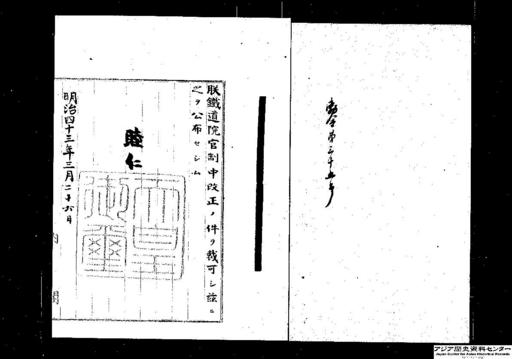 勅令第三十五号
朕鐵道院官制中改正ノ件ヲ裁可シ茲ニ
之ヲ公布セシム
睦仁
天皇御璽
明治四十三年三月二十六日
内閣
アジア歴史資料センター
Japan Center for Asian Historical Records